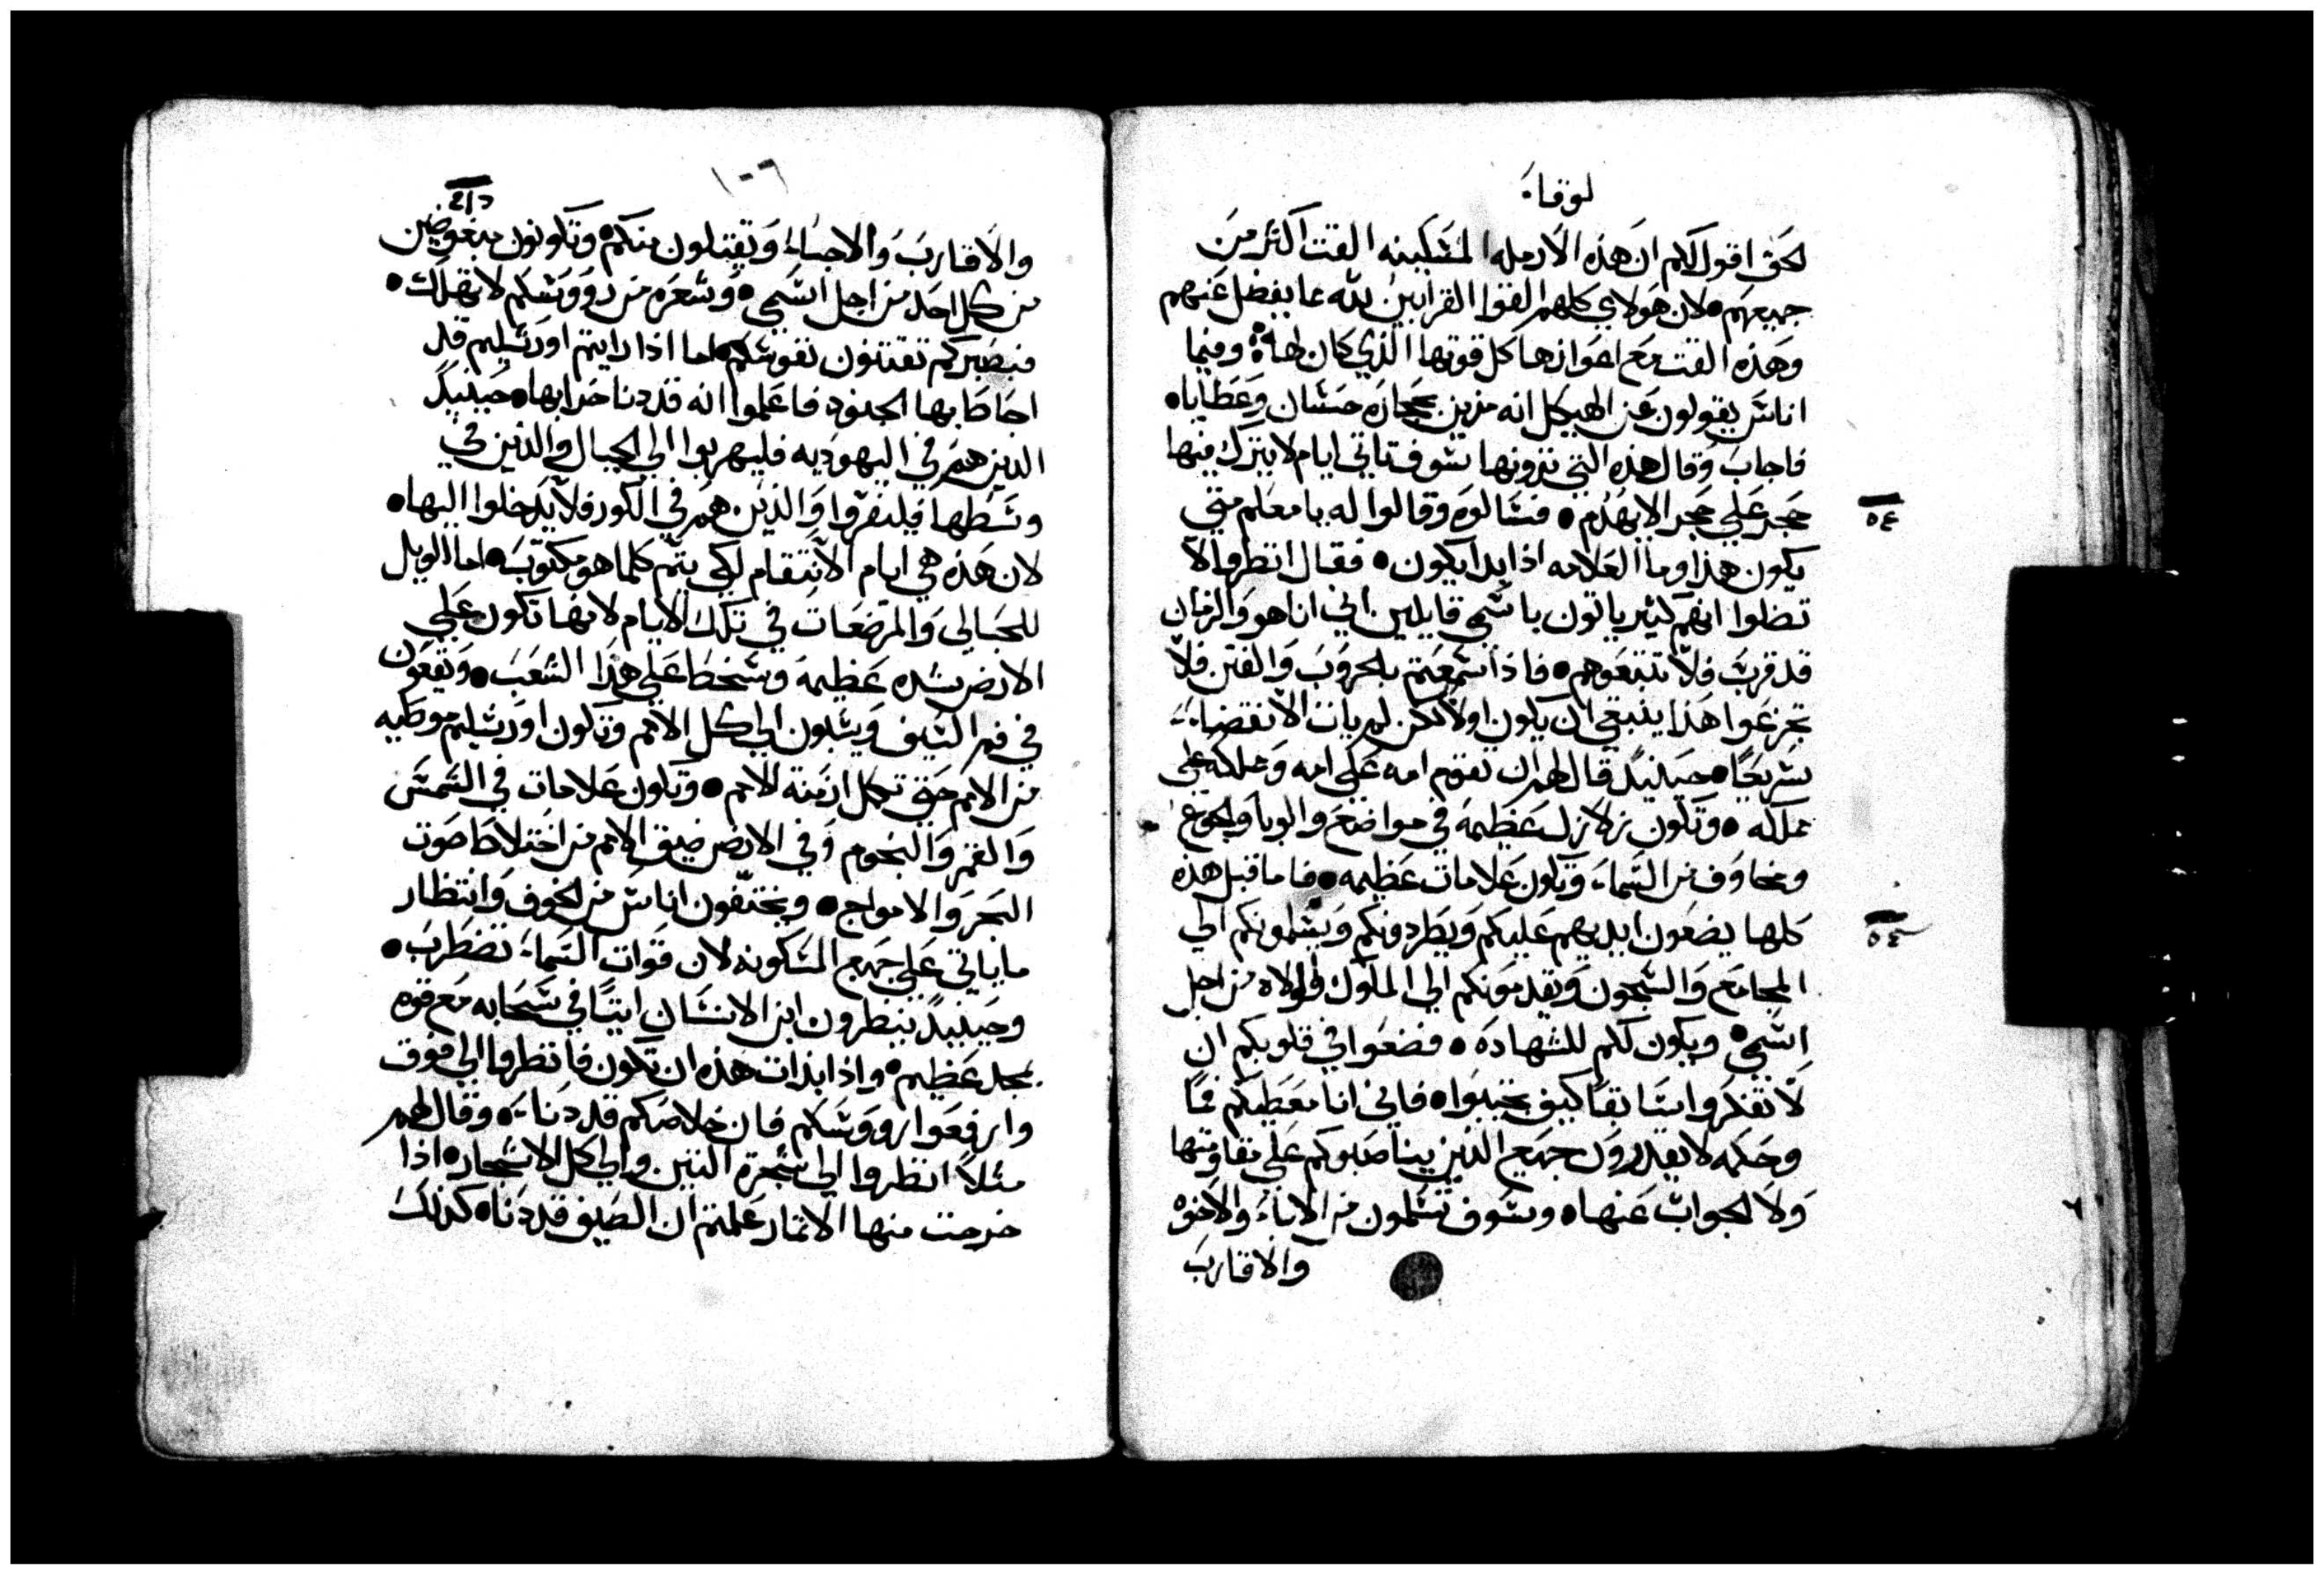 لوقا
لحق اقول لكم ان هذه الارمله المسكينه القت اكثر من
جميعهم لان هولاي كلهم القوا القرابين لله مما يفضل عنهم
وهذه القت مع اعوازها كل قوتها الذي كان لها وفيما
اناس يقولون عن الهيكل انه مزين بحجاره حسان وعطايا
فاجاب وقال هذه التي ترونها سوف تاتي ايام لا يترك فيها
حجر علي حجر الا يهدم فسالوه وقالوا له يا معلم متي
يكون هذا وما العلامه اذا بدا يكون فقال انظروا لا
تضلوا انهم كثير ياتون باسمي قايلين اني انا هو والزمان
قد قرب فلا تتبعوهم فاذا سمعتم بالحروب والفتن فلا
تجزعوا هذا ينبغي ان يكون اولا لكن لم يات الانقضاء
سريعا حينيد قال لهم ان تقوم امه علي امه ومملكه علي
مملكه وتكون زلازل عظيمه في مواضع والوبا والجوع
ومخاوف من السماء وتكون علامات عظيمه فاما قبل هذه
كلها يضعون ايديهم عليكم ويطردونكم ويسلمونكم الي
المجامع والسجون ويقدمونكم الي الملوك والولاه من اجل
اسمي ويكون لكم للشهاده فضعوا في قلوبكم ان
لا تفكروا سابقا كيف تجيبوا فاني انا معطيكم فما
وحكمه لا يقدرون جميع الذين يناصبوكم علي مقاومتها
ولا لجواب عنها وسوف تسلمون من الاباء والاخوه
والاقارب
٥٤
٥٤
١٠٦
والاقارب والاحباء ويقتلون منكم وتكونون مبغوضين
من كل احد من اجل اسمي وشعره من رووسكم لا تهلك
فبصبركم تقتنون نفوسكم اما اذا رايتم اورشليم قد
احاط بها الجنود فاعلموا انه قد دنا خرابها حينيد
الذين هم في اليهوديه فليهربوا الي الجبال والذين في
وسطها فليفروا والذين هم في الكور فلا يدخلوا اليها
لان هذه هي ايام الانتقام لكي يتم كلما هو مكتوب اما الويل
للحبالي والمرضعات في تلك الايام لانها تكون علي
الارض شده عظيمه وسخط علي هذا الشعب ويقعون
في فم السيف ويسبون الي كل الامم وتكون اورشليم موطيه
من الامم حتي تكمل ازمنة الامم وتكون علامات في الشمس
والقمر والنجوم وفي الارض ضيق الامم من اختلاط صوت
البحر والامواج ويختفون اناس من الخوف وانتظار
ما ياتي علي جميع المسكونه لان قوات السماء تضطرب
وحينيد ينظرون ابن الانسان اتيا في سحابه مع قوه
ومجد عظيم واذا ابدات هذه ان تكون فانظروا الي فوق
وارفعوا رووسكم فان خلاصكم قد دنا وقال لهم
مثلا انظروا الي شجرة التين والي كل الاشجار اذا
خرجت منها الاثمار علمتم ان الصيف قد دنا كذلك